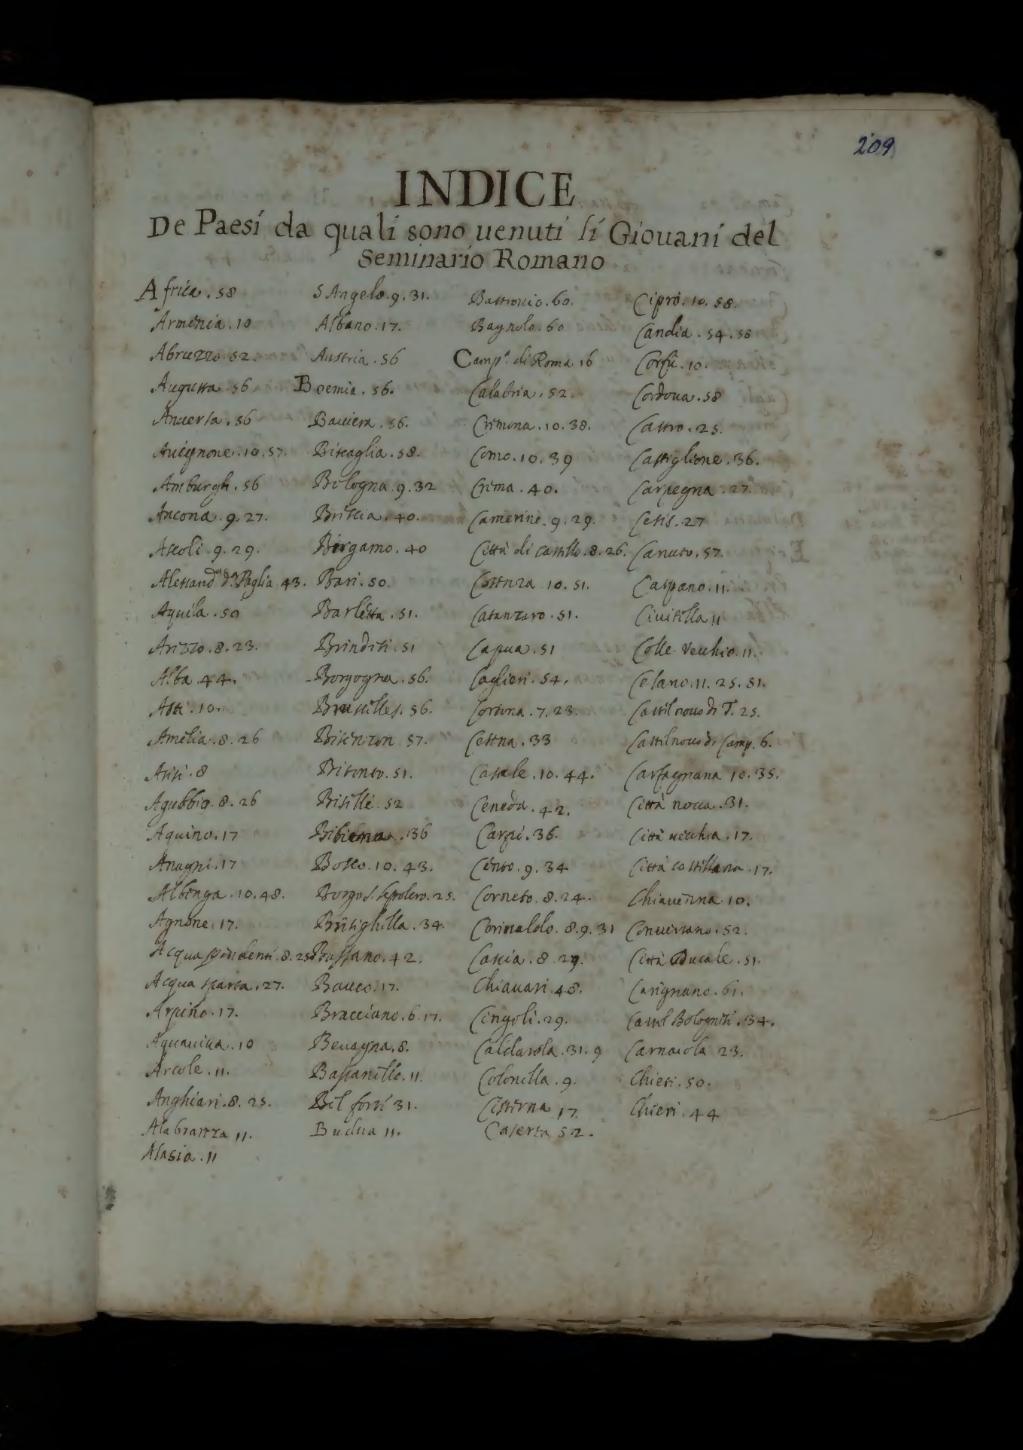 209
INDICE
De Paesi da quali sono uenuti li Giouani del
Seminario Romano
Africa . 58
Armenia . 10
Abruzzo 52
Augusta 56
Anuersa . 56
Auignone . 10 . 57
Amburgh . 56
Ancona . 9 . 27 .
Ascoli . 9 . 29 .
Alessand.ª d.ª Paglia 43 .
Aquila . 50
Arezzo . 8 . 23 .
Alba 44 .
Asti . 10 .
Amelia . 8 . 26
Asisi . 8
Agubbio . 8 . 26
Aquino . 17
Anagni . 17
Albenga . 10 . 48 .
Agnone . 17 .
Acquapendente . 8 . 25
Acqua sparsa . 27 .
Arpino . 17 .
Aquauiua . 10
Arcole . 11 .
Anghiari . 8 . 25 .
Alabranza 11 .
Alasia . 11
S Angelo . 9 . 31 .
Albano . 17 .
Austria . 56
Boemia . 56 .
Bauiera . 56 .
Biscaglia . 58 .
Bologna . 9 . 32
Brescia . 40 .
Bergamo . 40
Bari . 50
Barletta . 51 .
Brindisi . 51
Borgogna . 56 .
Brusselles . 56 .
Bisenzon 57 .
Bitonto . 51 .
Biselli 52
Bibiena . 36
Bosco . 10 . 43 .
Borgo S. Sepolcro . 25
Brisighilla . 34
Bassano . 42 .
Bauco . 17 .
Bracciano . 6 . 17 .
Beuagna . 8 .
Bassanello . 11
Bel forte 31 .
Budua 11 .
Bastonio . 60 .
Bagnolo . 60
Camp.ª di Roma 16
Calabria . 52 .
Cremona . 10 . 38 .
Como . 10 . 39
Crema . 40 .
Camerino . 9 . 29 .
Città di Castello . 8 . 26 .
Cosenza 10 . 51 .
Catanzaro . 51 .
Capua . 51
Caglieri . 54 .
Cortona . 7 . 23 .
Cesena . 33
Casale . 10 . 44 .
Ceneda . 42 .
Carpi . 36
Cento . 9 . 34
Corneto . 8 . 24 .
Corinaldo . 8 . 9 . 31
Cascia . 8 . 29 .
Chiauari . 48 .
Cingoli . 29 .
Caldarola . 31 . 9
Colonella . 9 .
Cisterna 17
Caserta 52 .
Cipro . 10 . 58 .
Candia . 54 . 58
Corfù . 10 .
Cordoua . 58
Castro . 25 .
Castiglione . 36 .
Carpegna . 27 .
Cesis . 27
Canuto . 57 .
Caspano . 11 .
Ciuitella 11
Colle Vecchio . 11 .
Celano . 11 . 25 . 51 .
Castelnouo di T. 25 .
Castelnouo di Camp. 6 .
Carfagnana 10 . 35 .
Città noua . 31 .
Città uechia . 17 .
Città castellana . 17 .
Chiauenna 10 .
Conuersano . 52 .
Città Ducale . 51 .
Carignano . 61 .
Castel Bolognesi . 34 .
Carnaiola 23 .
Chieti . 50 .
Chieri . 44